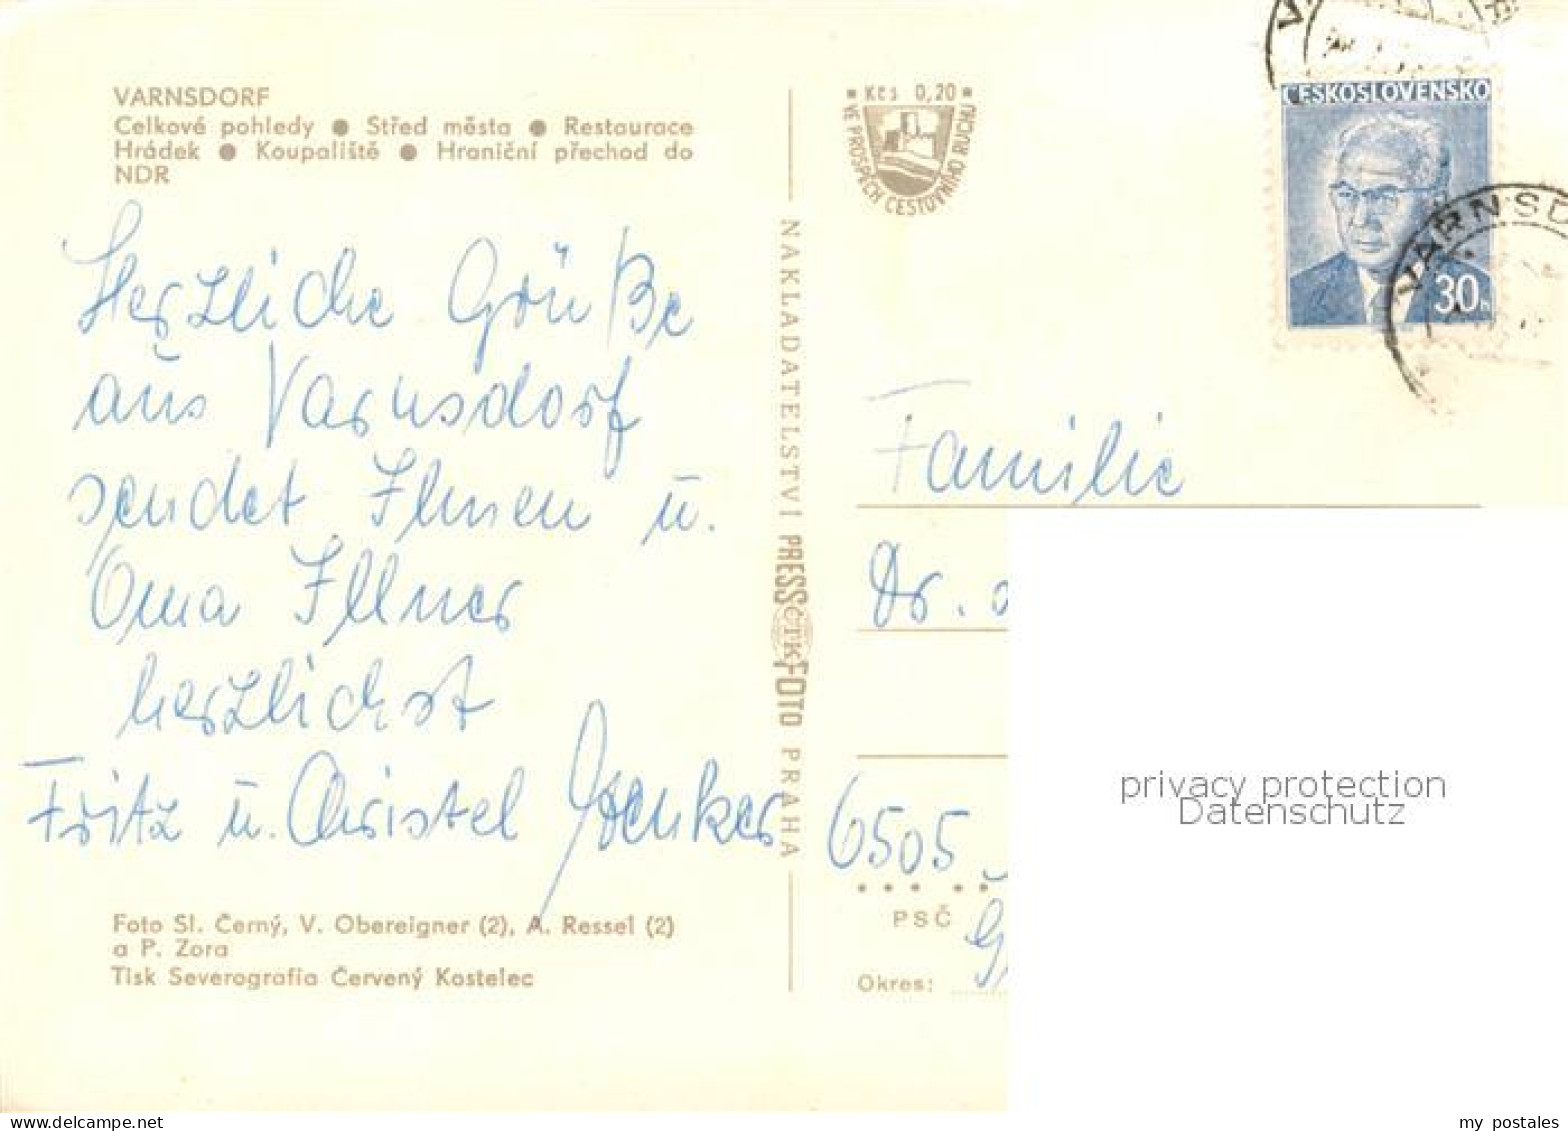 VARNSDORF
Celkové pohledy ● Střed města ● Restaurace
Hrádek ● Koupaliště ● Hraniční přechod do
NDR
Herzliche Grüße
aus Varnsdorf
sendet Ihnen u.
Oma Illner
herzlichst
Fritz u. Christel
Foto Sl. Černý, V. Obereigner (2), A. Ressel (2)
a P. Zora
Tisk Severografia Červený Kostelec
NAKLADATELSTVÍ PRESSFOTO PRAHA
ČTK
Kčs 0,20
VE PROSPĚCH CESTOVNÍHO RUCHU
ČESKOSLOVENSKO
30h
VARNSD
Familie
Dr.
6505
PSČ
Okres:
privacy protection
Datenschutz
my postales